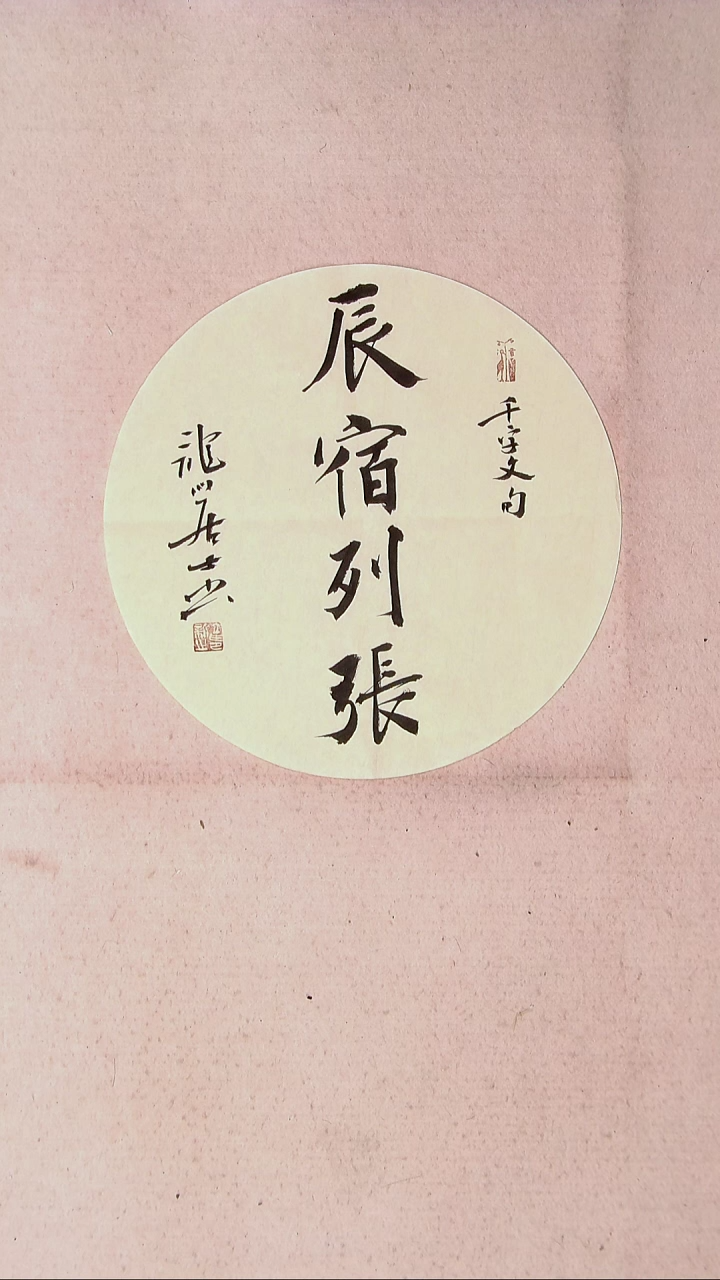 千字文句
辰宿列張
龍山居士書